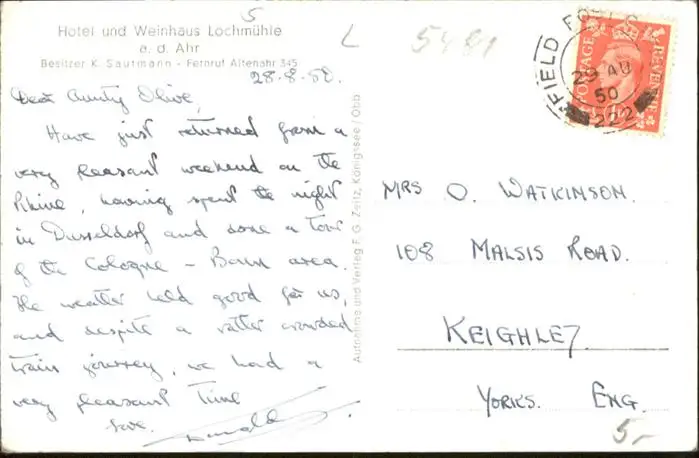 5
Hotel und Weinhaus Lochmühle
a. d. Ahr
Besitzer K. Sautmann - Fernruf Altenahr 345
L
5481
28-8-50.
Dear Aunty Olive,
Have just returned from a
very pleasant weekend on the
Rhine, having spent the night
in Dusseldorf and done a tour
of the Cologne - Bonn area.
The weather held good for us,
and despite a rather crowded
train journey, we had a
very pleasant time
Love.
Aufnahme und Verlag F. G. Zeitz, Königssee / Obb
FIELD POST
29 AU
50
222
POSTAGE
REVENUE
MRS O. WATKINSON.
108 MALSIS ROAD.
KEIGHLEY
YORKS. ENG.
5,-